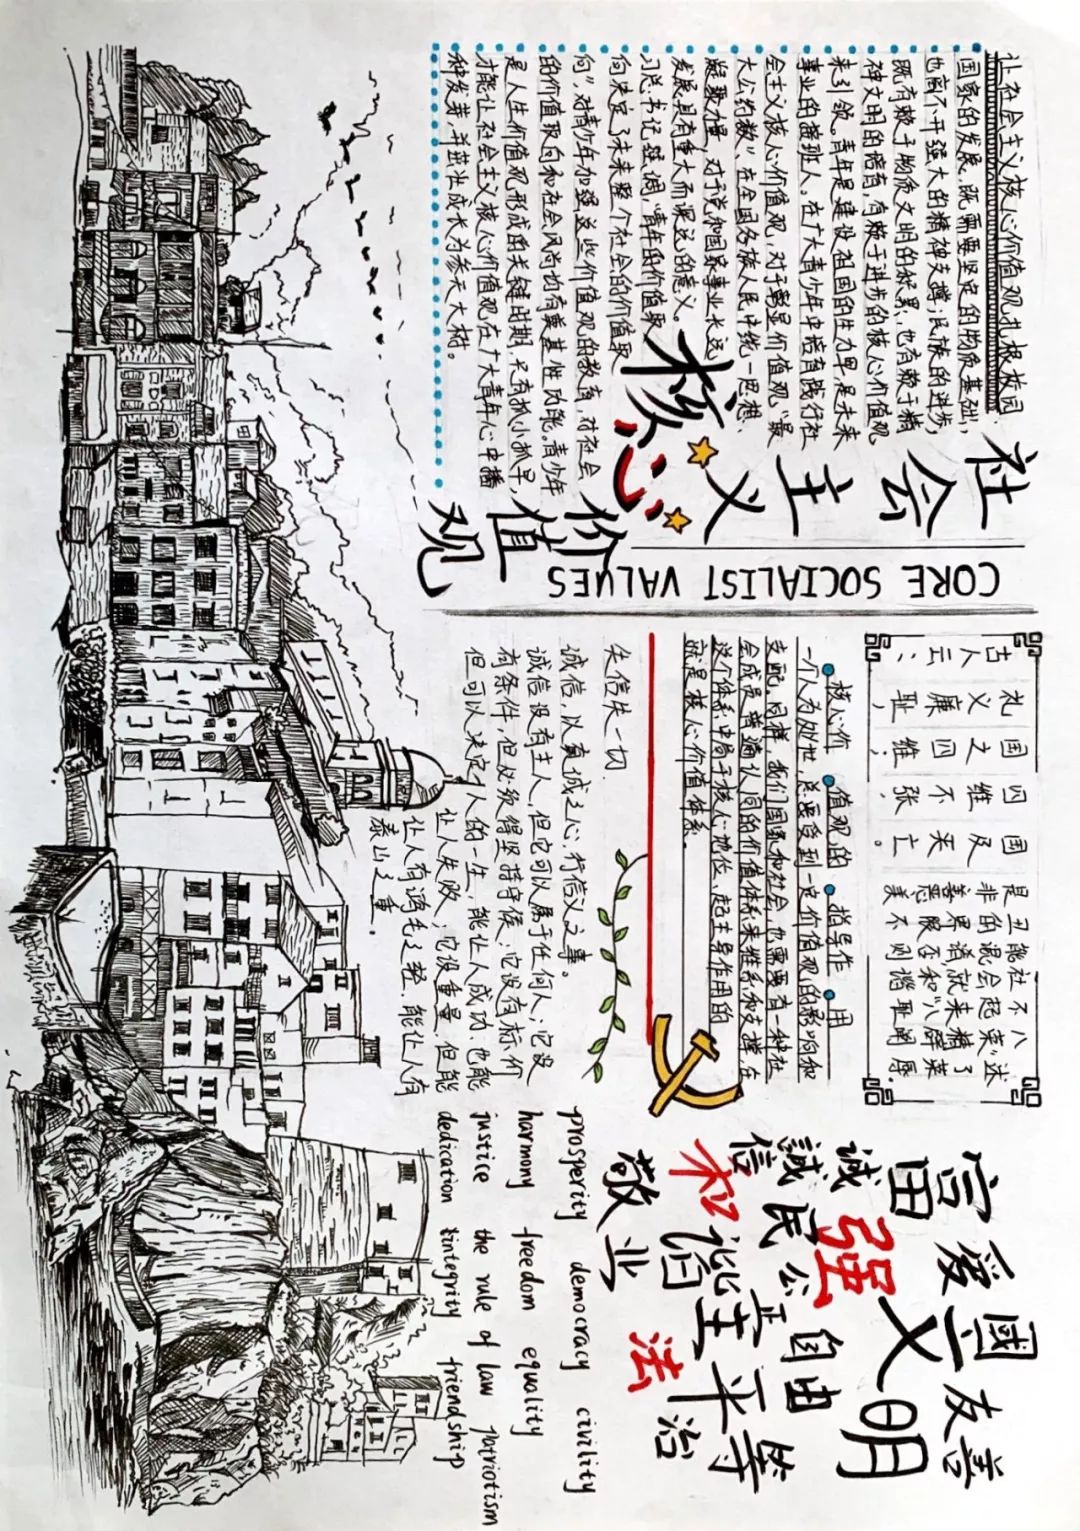 让社会主义核心价值观扎根校园
国家的发展,既需要坚定的物质基础,
也离不开强大的精神支撑;民族的进步,
既有赖于物质文明的积累,也有赖于精
神文明的培育,有赖于进步的核心价值观
来引领。青年是建设祖国的生力军,是未来
事业的接班人,在广大青少年中培育践行社
会主义核心价值观,对于彰显价值观“最
大公约数”,在全国各族人民中统一思想、
凝聚力量,对于党和国家事业长远
发展具有重大而深远的意义。
习总书记强调,“青年的价值取
向决定了未来整个社会的价值取
向”,对青少年加强这些价值观的教育,对社会
的价值取向和社会风尚也有奠基性功能。青少年
是人生价值观形成的关键时期,只有抓小抓早,
才能让社会主义核心价值观在广大青年心中播
种发芽,并茁壮成长为参天大树。
社会主义核心价值观
CORE SOCIALIST VALUES
古人云:
礼义廉耻,
国之四维,
四维不张,
国乃灭亡。
是非善恶美
丑的界限不
能混淆否则
社会就和谐
不起来八耻
八荣”
述了荣辱
核心价值观的指导作用
一个人为人处世,总要受到一定价值观的影响和
支配。同样,我们国家和社会,也需要有一种社
会成员普遍认同的价值体系来维系和支撑,在
这个体系中居于核心地位、起主导作用的
就是核心价值体系.
失信失一切.
诚信,以真诚之心,行信义之事。
诚信没有主人,但它可以属于任何人;它没
有条件,但必须得坚持守候;它没有标价
但可以决定人的一生,能让人成功,也能
让人失败,它没重量,但能
让人有鸿毛之轻,能让人有
泰山之重。
富强
爱國
文明
友善
誠信
民
公正
自由
平等
和谐
法治
敬业
prosperity democracy civility
harmony freedom equality
justice the rule of law patriotism
dedication integrity friendship